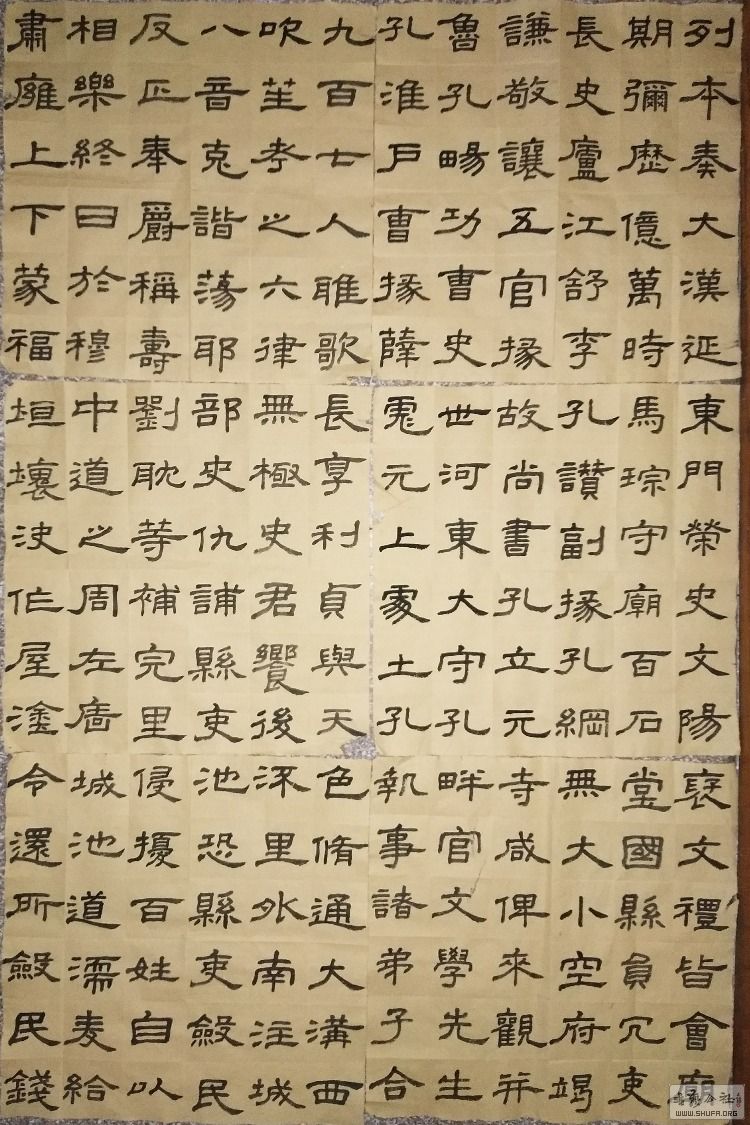 列本奏大漢延
期彌歷億萬時
長史廬江舒李
謙敬讓五官掾
魯孔暢功曹史
孔淮戶曹掾薛
東門榮史文陽
馬琮守廟百石
孔讚副掾孔綱
故尚書孔立元
世河東大守孔
彪元上處土孔
褒文禮皆會廟
堂國縣員冗吏
無大小空府竭
寺咸俾來觀并
畔官文學先生
執事諸弟子合
九百七人雅歌
吹笙考之六律
八音克諧蕩耶
反正奉爵稱壽
相樂終日於穆
肅雍上下蒙福
長享利貞與天
無極史君饗後
部史仇誧縣吏
劉耽等補完里
中道之周左廧
垣壞決作屋塗
色脩通大溝西
流里外南注城
池恐縣吏斂民
侵擾百姓自以
城池道濡麥給
令還所斂民錢
WWW.SHUFA.ORG